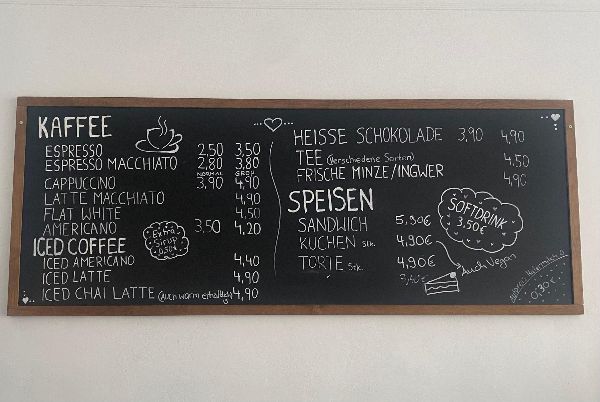 KAFFEE
ESPRESSO 2,50 3,50
ESPRESSO MACCHIATO 2,80 3,80
NORMAL GROß
CAPPUCCNO 3,90 4,90
LATTE MACCHIATO 4,90
FLAT WHITE 4,50
AMERICANO 3,50 4,20
Extra
Sirup
0,50€
ICED COFFEE
ICED AMERICANO 4,40
ICED LATTE 4,90
ICED CHAI LATTE (Auch warm erhältlich) 4,90
HEISSE SCHOKOLADE 3,90 4,90
TEE (Verschiedene Sorten) 4,50
FRISCHE MINZE/INGWER 4,90
SPEISEN
SANDWICH 5,90€
KUCHEN Stk. 4,90€
TORTE Stk. 4,90€
Auch Vegan
SOFTDRINK
3,50€
0,30€